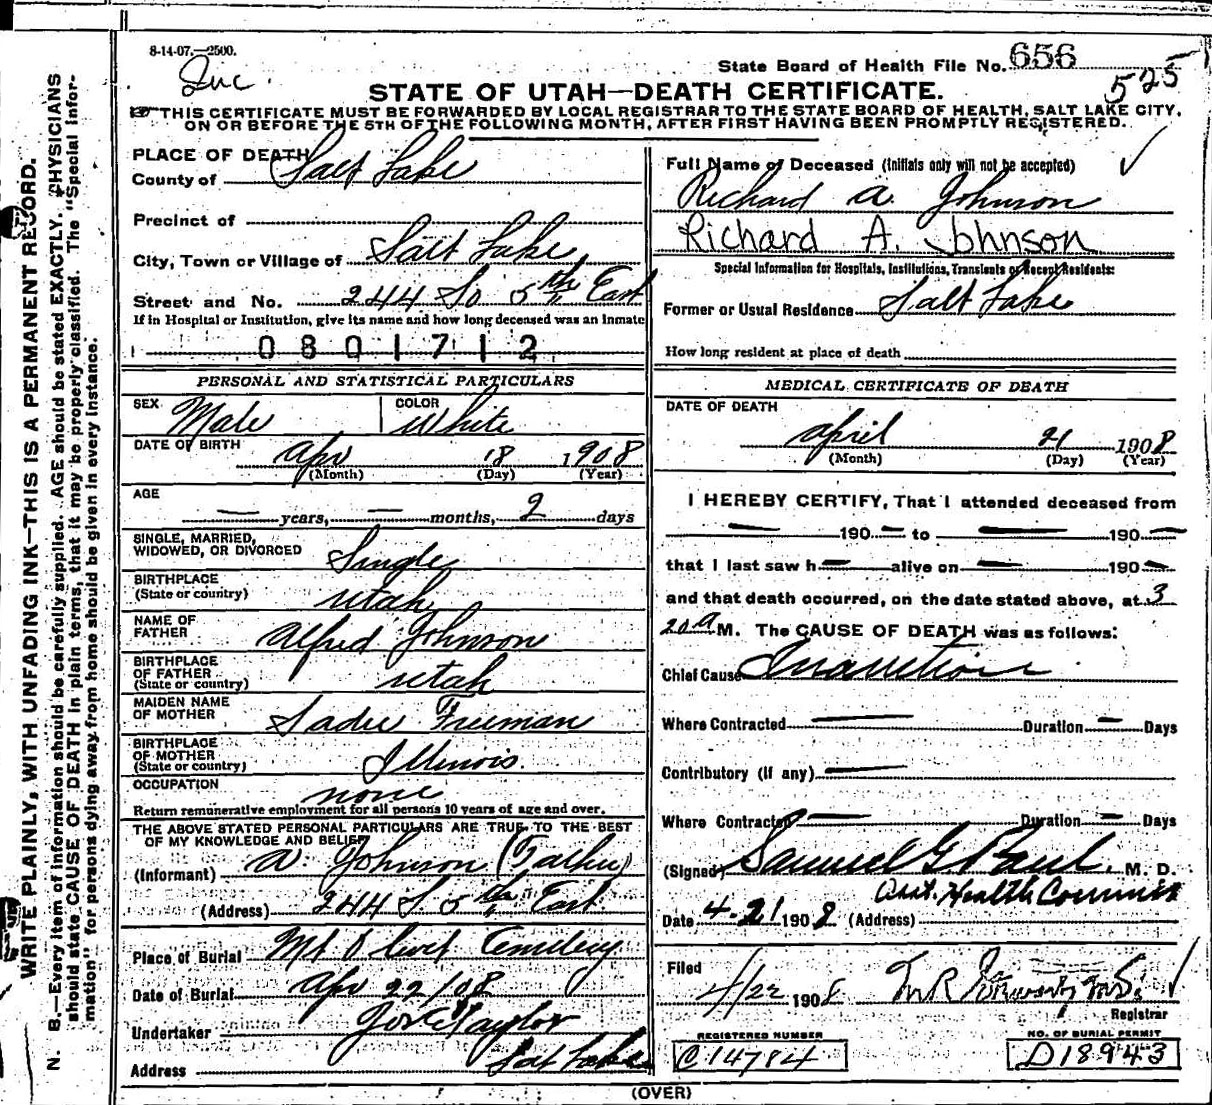 8-14-07.—2500.
State Board of Health File No. 656
525
STATE OF UTAH—DEATH CERTIFICATE.
THIS CERTIFICATE MUST BE FORWARDED BY LOCAL REGISTRAR TO THE STATE BOARD OF HEALTH, SALT LAKE CITY,
ON OR BEFORE THE 5TH OF THE FOLLOWING MONTH, AFTER FIRST HAVING BEEN PROMPTLY REGISTERED.
WRITE PLAINLY, WITH UNFADING INK—THIS IS A PERMANENT RECORD.
N. B.—Every item of information should be carefully supplied. AGE should be stated EXACTLY. PHYSICIANS
should state CAUSE OF DEATH in plain terms, that it may be properly classified. The "Special Infor-
mation" for persons dying away from home should be given in every instance.
PLACE OF DEATH
County of Salt Lake
Precinct of
City, Town or Village of Salt Lake
Street and No. 244 So 5th East
If in Hospital or Institution, give its name and how long deceased was an inmate
0801712
PERSONAL AND STATISTICAL PARTICULARS
SEX Male COLOR White
DATE OF BIRTH Apr 18 1908
(Month) (Day) (Year)
AGE
— years, — months, 2 days
SINGLE, MARRIED,
WIDOWED, OR DIVORCED Single
BIRTHPLACE
(State or country) Utah
NAME OF
FATHER Alfred Johnson
BIRTHPLACE
OF FATHER
(State or country) Utah
MAIDEN NAME
OF MOTHER Sadie Freeman
BIRTHPLACE
OF MOTHER
(State or country) Illinois.
OCCUPATION none
Return remunerative employment for all persons 10 years of age and over.
THE ABOVE STATED PERSONAL PARTICULARS ARE TRUE TO THE BEST
OF MY KNOWLEDGE AND BELIEF
(Informant) A. Johnson (Father)
(Address) 244 S 5th East
Place of Burial Mt Olivet Cemetery
Date of Burial Apr 22/08
Undertaker Jos E Taylor
Address Salt Lake
Full Name of Deceased (Initials only will not be accepted)
Richard A. Johnson
Richard A. Johnson
Special Information for Hospitals, Institutions, Transients or Recent Residents:
Former or Usual Residence Salt Lake
How long resident at place of death
MEDICAL CERTIFICATE OF DEATH
DATE OF DEATH
April 21 1908
(Month) (Day) (Year)
I HEREBY CERTIFY, That I attended deceased from
— 190 — to — 190 —
that I last saw h — alive on — 190 —
and that death occurred, on the date stated above, at 3
20 a M. The CAUSE OF DEATH was as follows:
Chief Cause Inanition
Where Contracted — Duration — Days
Contributory (if any) —
Where Contracted — Duration — Days
(Signed) Samuel G. Paul, M. D.
Asst. Health Commis
Date 4-21 1908 (Address)
Filed
4/22 1908
Registrar
REGISTERED NUMBER
C14784
NO. OF BURIAL PERMIT
D18943
(OVER)